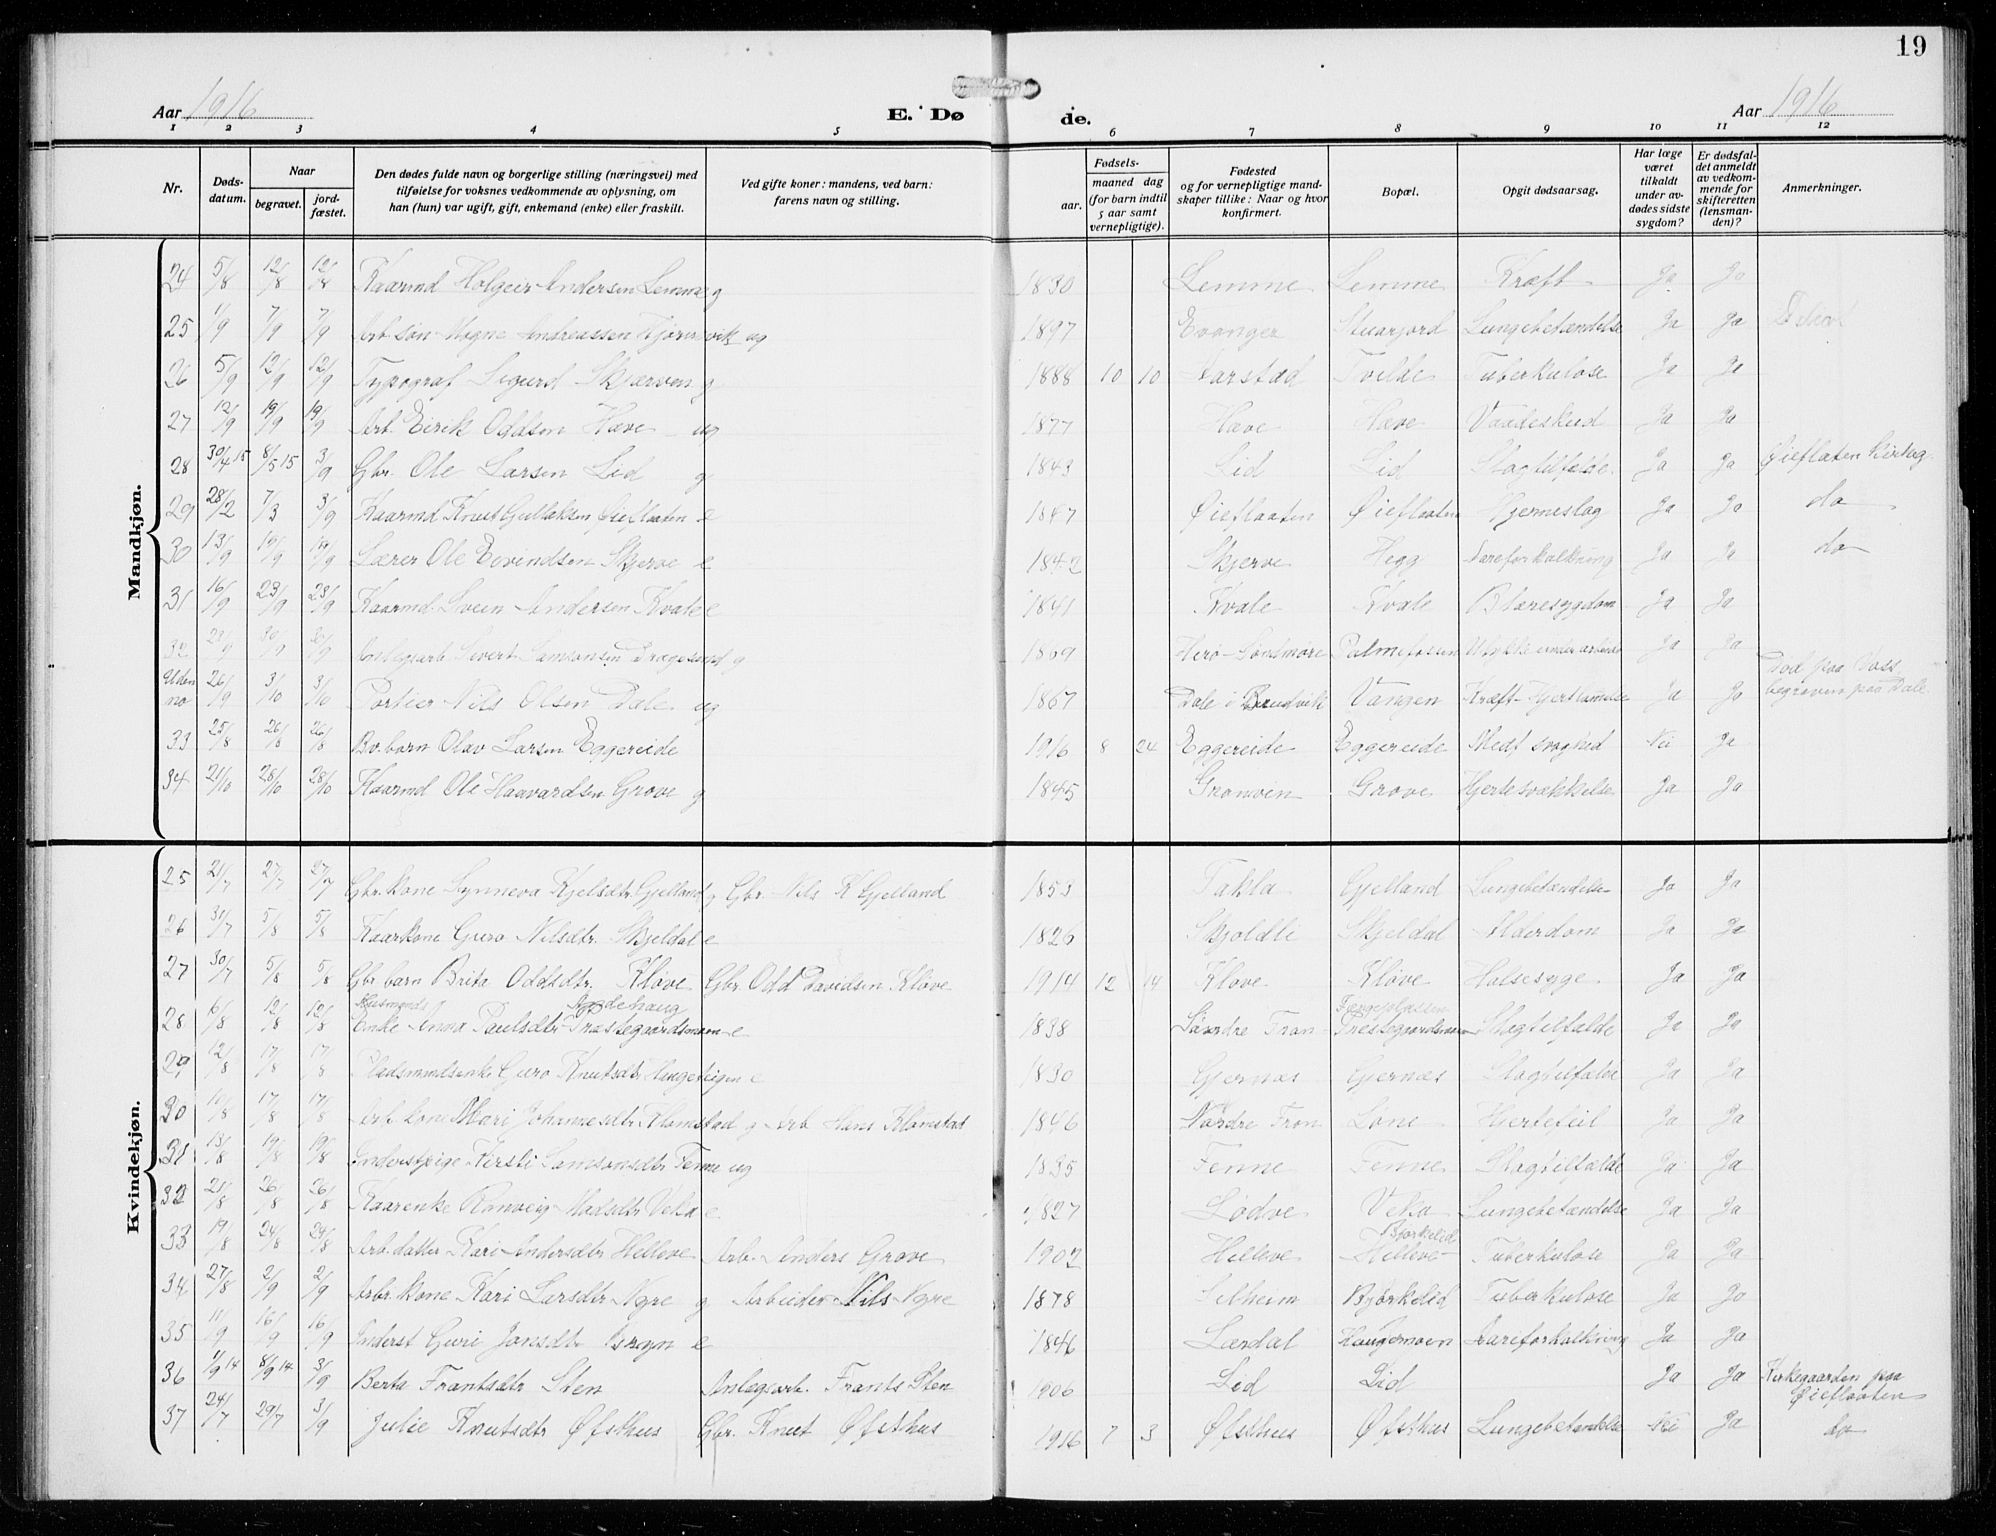 19
Aar 1916
E. Døde.
Aar 1916
1 2 3 4 5 6 7 8 9 10 11 12
Nr.
Døds-
datum.
Naar
begravet.
jord-
fæstet.
Den dødes fulde navn og borgerlige stilling (næringsvei) med
tilføielse for voksnes vedkommende av oplysning, om
han (hun) var ugift, gift, enkemand (enke) eller fraskilt.
Ved gifte koner: mandens, ved barn:
farens navn og stilling.
Fødsels-
aar.
maaned dag
(for barn indtil
5 aar samt
vernepligtige).
Fødested
og for vernepligtige mand-
skaper tillike: Naar og hvor
konfirmert.
Bopæl.
Opgit dødsaarsag.
Har læge
været
tilkaldt
under av-
dødes sidste
sygdom?
Er dødsfal-
det anmeldt
av vedkom-
mende for
skifteretten
(lensman-
den)?
Anmerkninger.
Mandkjøn.
24 5/8 12/8 12/8 Kaarmd Holgeir Andersen Lemme g 1830 Lemme Lemme Kræft Ja Ja
25 1/9 7/9 7/9 Arb. søn Mogne Andreassen ug 1897 Evanger Lungebetændelse Ja Ja
26 5/9 12/9 12/9 Typograf Sigurd Skjerven g 1888 10 10 Harstad Tvilde Tuberkulose Ja Ja
27 12/9 19/9 19/9 Arb. Eirik Oddsen Hæve ug 1877 Hæve Hæve Vaadeskud Ja Ja
28 30/4 15 8/5 15 3/9 Gbr. Ole Larsen Lid g 1843 Lid Lid Slagtilfælde Ja Ja Øieflaten Kirkeg.
29 28/2 7/3 3/9 Kaarmd Knut Gullaksen Øieflaaten e 1847 Øieflaaten Øieflaaten Hjerneslag Ja Ja do
30 13/9 19/9 19/9 Lærer Ole Eivindsen Skjerve e 1842 Skjerve Hegg Aareforkalkning Ja Ja do
31 16/9 23/9 23/9 Kaarmd Svein Andersen Kvale e 1841 Kvale Kvale Blæresygdom Ja Ja
32 30/9 Anlegsarb Sivert Samsonsen Dragesund g 1869 Herø Søndmøre Palmefossen Ulykke under arbeide Ja Ja
Uden no 26/9 3/10 3/10 Portier Nils Olsen Dale ug 1867 Dale i Bruvik Vangen Kræft - Hjertlammelse Ja Ja Død paa Voss, begraven paa Dale
33 25/8 26/8 26/8 Bv. barn Olav Larsen Eggereide 1916 8 24 Eggereide Eggereide Medf svaghed Nei Ja
34 21/10 28/10 28/10 Kaarmd Ole Haavardsen Grove g 1845 Granvin Grove Hjertesvækkelse Ja Ja
Kvindekjøn.
25 21/7 27/7 27/7 Gbr. kone Synneva Kjelsdtr Gjelland g Gbr. Nils K Gjelland 1853 Takla Gjelland Lungebetændelse Ja Ja
26 31/7 5/8 5/8 Kaarkone Guro Nilsdtr. Skjeldal e 1826 Skjoldli Skjeldal Alderdom Ja Ja
27 30/7 5/8 5/8 Gbr barn Brita Oddsdtr. Kløve Gbr. Odd Davidsen Kløve 1914 12 14 Kløve Kløve Halsesyge Ja Ja
Husmands
28 6/8 12/8 12/8 Enke Anna Paulsdtr Præstegaardsmoen e 1838 Søndre Fron Prestegaardsmoen Slagtilfælde Ja Ja
29 12/8 17/8 17/8 Pladsmandsenke Guro Knutsdtr Hangeteigen e 1830 Gjernæs Gjernæs Slagtilfælde Ja Ja
30 10/8 17/8 17/8 Arb. kone Mari Johannesdtr Klomstad g Arb Hans Klomstad 1846 Nordre Fron Lone Hjertefeil Ja Ja
31 13/8 19/8 19/8 Inderstpige Kirsti Samsonsdtr Fenne ug 1835 Fenne Fenne Slagtilfælde Ja Ja
32 21/8 26/8 26/8 Kaarenke Ranveig Madsdtr Veka e 1827 Lødve Veka Lungebetændelse Ja Ja
33 19/8 24/8 24/8 Arb. datter Kari Andersdtr Helleve Arb. Anders Grove 1902 Helleve Bjørkelid Helleve Tuberkulose Ja Ja
34 27/8 2/9 2/9 Arbr. kone Kari Larsdtr Nyre g Arbeider Nils Nyre 1878 Selheim Bjørkelid Tuberkulose Ja Ja
35 11/9 16/9 16/9 Inderst Guri Jonsdtr Bryn e 1846 Lærdal Haugamoen Aareforkalkning Ja Ja
36 1/9 14 8/9 14 3/9 Berta Frantsdtr Sten Anlegsarb. Frants Sten 1906 Lid Lid Ja Ja Kirkegaarden paa Øieflaaten
37 24/7 29/7 3/9 Julie Knutsdtr Øfsthus Gbr. Knut Øfsthus 1916 7 3 Øfsthus Øfsthus Lungebetændelse Nei Ja do